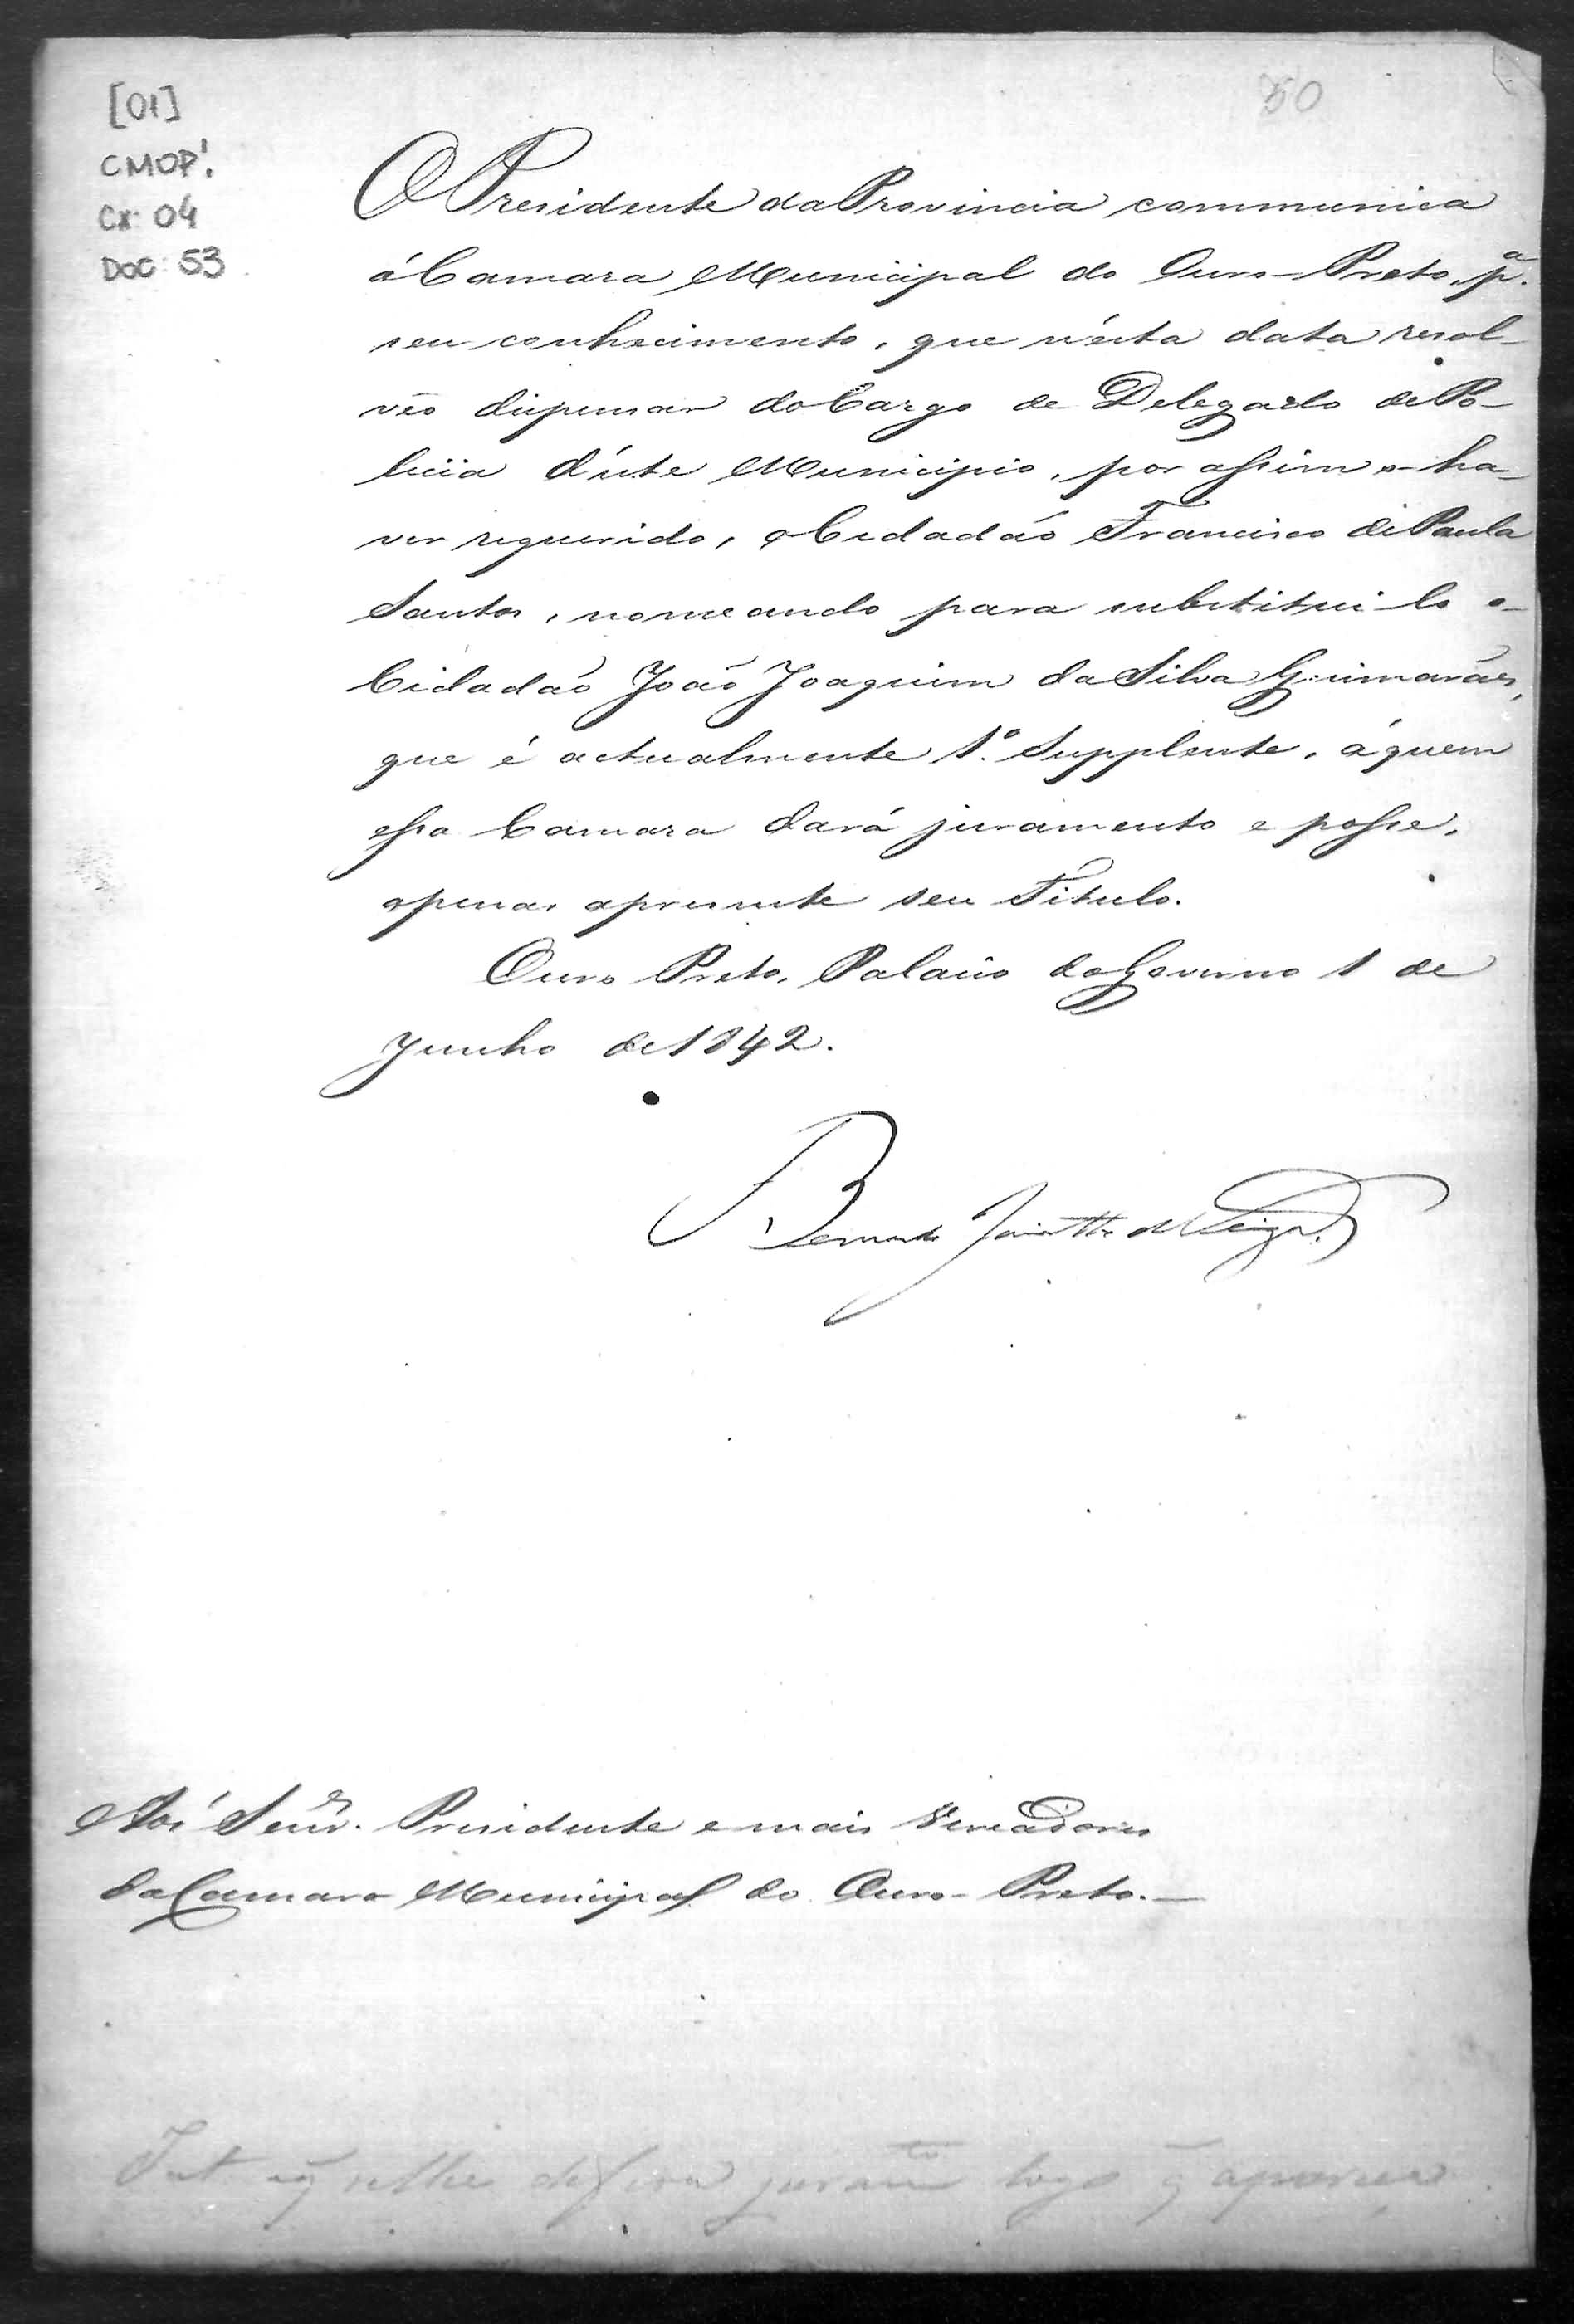 [01]
CMOP!
Cx: 04
Doc: 53
O Presidente da Provincia communica
á Camara Municipal do Ouro-Preto, pª.
seu conhecimento, que n'ésta data resol-
veo dispensar do Cargo de Delegado de Po-
licia d'éste Municipio, por assim o ha-
ver requerido, o Cidadão Francisco de Paula
Santos, nomeando para substitui-lo o
Cidadão João Joaquim da Silva Guimarães,
que é actualmente 1º. Supplente, á quem
essa Camara dará juramento e posse,
apenas apresente seu Titulo.
Ouro Preto, Palacio do Governo 1 de
Junho de 1842.
Bernardo Jacintho da Veiga.
Presidente e mais Vereadores
da Camara Municipal do Ouro-Preto.